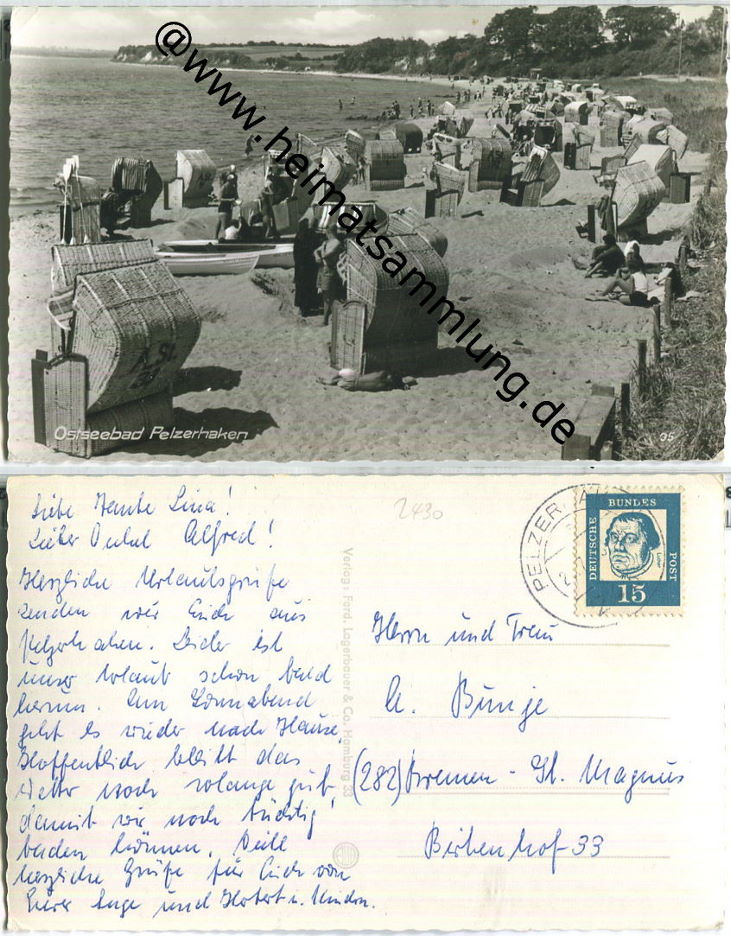 @www.heimatsammlung.de
A. St.
Ostseebad Pelzerhaken
35
Liebe Tante Lina!
Lieber Onkel Alfred!
Herzliche Urlaubsgrüße
senden wir Euch aus
Pelzerhaken. Leider ist
unser Urlaub schon bald
herum. Am Sonnabend
geht es wieder nach Hause.
Hoffentlich bleibt das
Wetter noch solange gut,
damit wir noch tüchtig
baden können. Viele
herzliche Grüße für Euch von
Eurer Inge und Hubert u. Kindern.
2430
Verlag: Ferd. Lagerbauer & Co. Hamburg 33
PELZERHAKEN
DEUTSCHE BUNDES POST
15
Herrn und Frau
A. Bunje
(282) Bremen - St. Magnus
Birkenhof 33